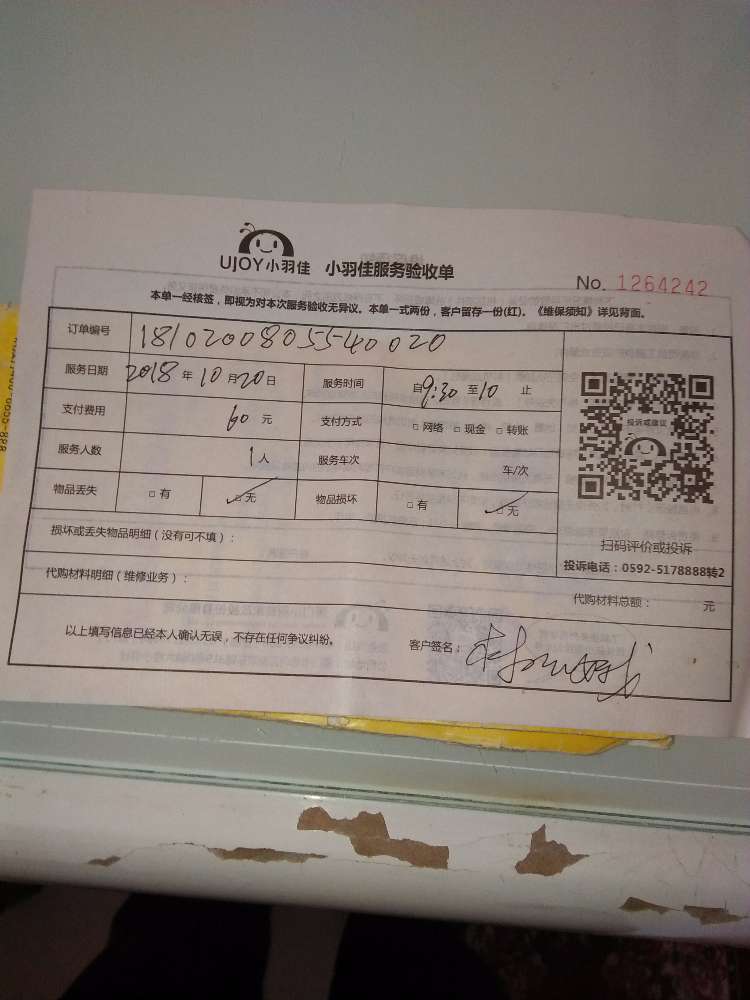 UJOY小羽佳 小羽佳服务验收单
No. 1264242
本单一经核签，即视为对本次服务验收无异议。本单一式两份，客户留存一份(红)。《维保须知》详见背面。
订单编号 18102008055540020
服务日期 2018 年 10 月 20 日 服务时间 自 9:30 至 10 止
支付费用 60 元 支付方式 □ 网络 □ 现金 □ 转账
投诉或建议
服务人数 1 人 服务车次 车/次
物品丢失 □ 有 □ 无 物品损坏 □ 有 □ 无
损坏或丢失物品明细（没有可不填）：
扫码评价或投诉
投诉电话：0592-5178888转2
代购材料明细（维修业务）：
代购材料总额： 元
以上填写信息已经本人确认无误，不存在任何争议纠纷。 客户签名：